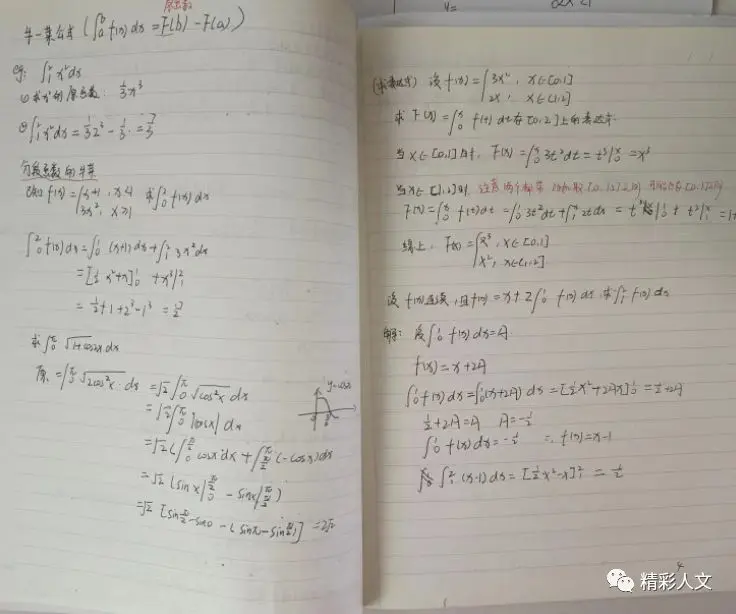 原函数
牛-莱公式 (∫₀ᵇ f(x) dx = F(b) - F(a))
eg: ∫₁² x²dx
① 求x²的原函数: ⅓x³
② ∫₁² x²dx = ⅓·2³ - ⅓ = 7/3
分段函数的牛莱
已知 f(x) = {x+1, x≤1 求∫₀² f(x) dx
3x², x>1
∫₀² f(x) dx = ∫₀¹ (x+1) dx + ∫₁² 3x² dx
= [½x²+x]₀¹ + x³|₁²
= ½+1+2³-1³ = 17/2
求 ∫₀^π √(1+cos2x) dx
原 = ∫₀^π √(2cos²x) dx = √2 ∫₀^π √(cos²x) dx
y=cosx
= √2 ∫₀^π |cosx| dx
= √2 (∫₀^(π/2) cosx dx + ∫_(π/2)^π (-cosx) dx
= √2 (sinx|₀^(π/2) - sinx|_(π/2)^π)
= √2 [sin π/2 - sin0 - (sinπ - sin π/2)] = 2√2
y=
(求表达式) 设 f(x) = {3x², x∈[0,1]
2x, x∈(1,2]
求 F(x) = ∫₀ˣ f(t) dt 在[0,2]上的表达式
当x∈[0,1]时, F(x) = ∫₀ˣ 3t² dt = t³|₀ˣ = x³
当x∈[1,2]时, 注意两个都
F(x) = ∫₀ˣ f(t) dt = ∫₀¹ 3t² dt + ∫₁ˣ 2t dx = t³|₀¹ + t²|₁ˣ = 1+
综上, F(x) = {x³, x∈[0,1]
x², x∈(1,2]
设 f(x)连续, 且f(x) = x + 2∫₀¹ f(x) dx 求∫₁² f(x) dx
解: 设∫₀¹ f(x) dx = A
f(x) = x+2A
∫₀¹ f(x) dx = ∫₀¹ (x+2A) dx = [½x²+2Ax]₀¹ = ½+2A
½+2A = A A = -½
∫₀¹ f(x) dx = -½ ∴ f(x) = x-1
∫₁² (x-1) dx = [½x²-x]₁² = ½
4
精彩人文